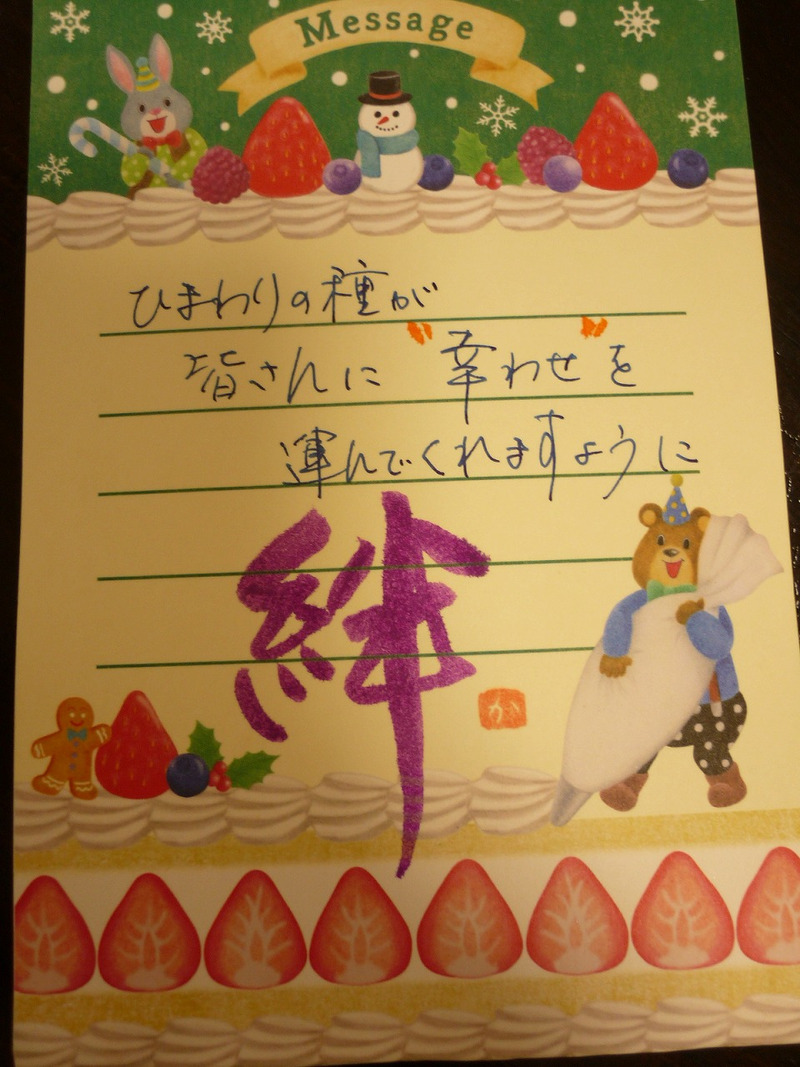 Message
ひまわりの種が
皆さんに "幸わせ"を
運んでくれますように
絆
か